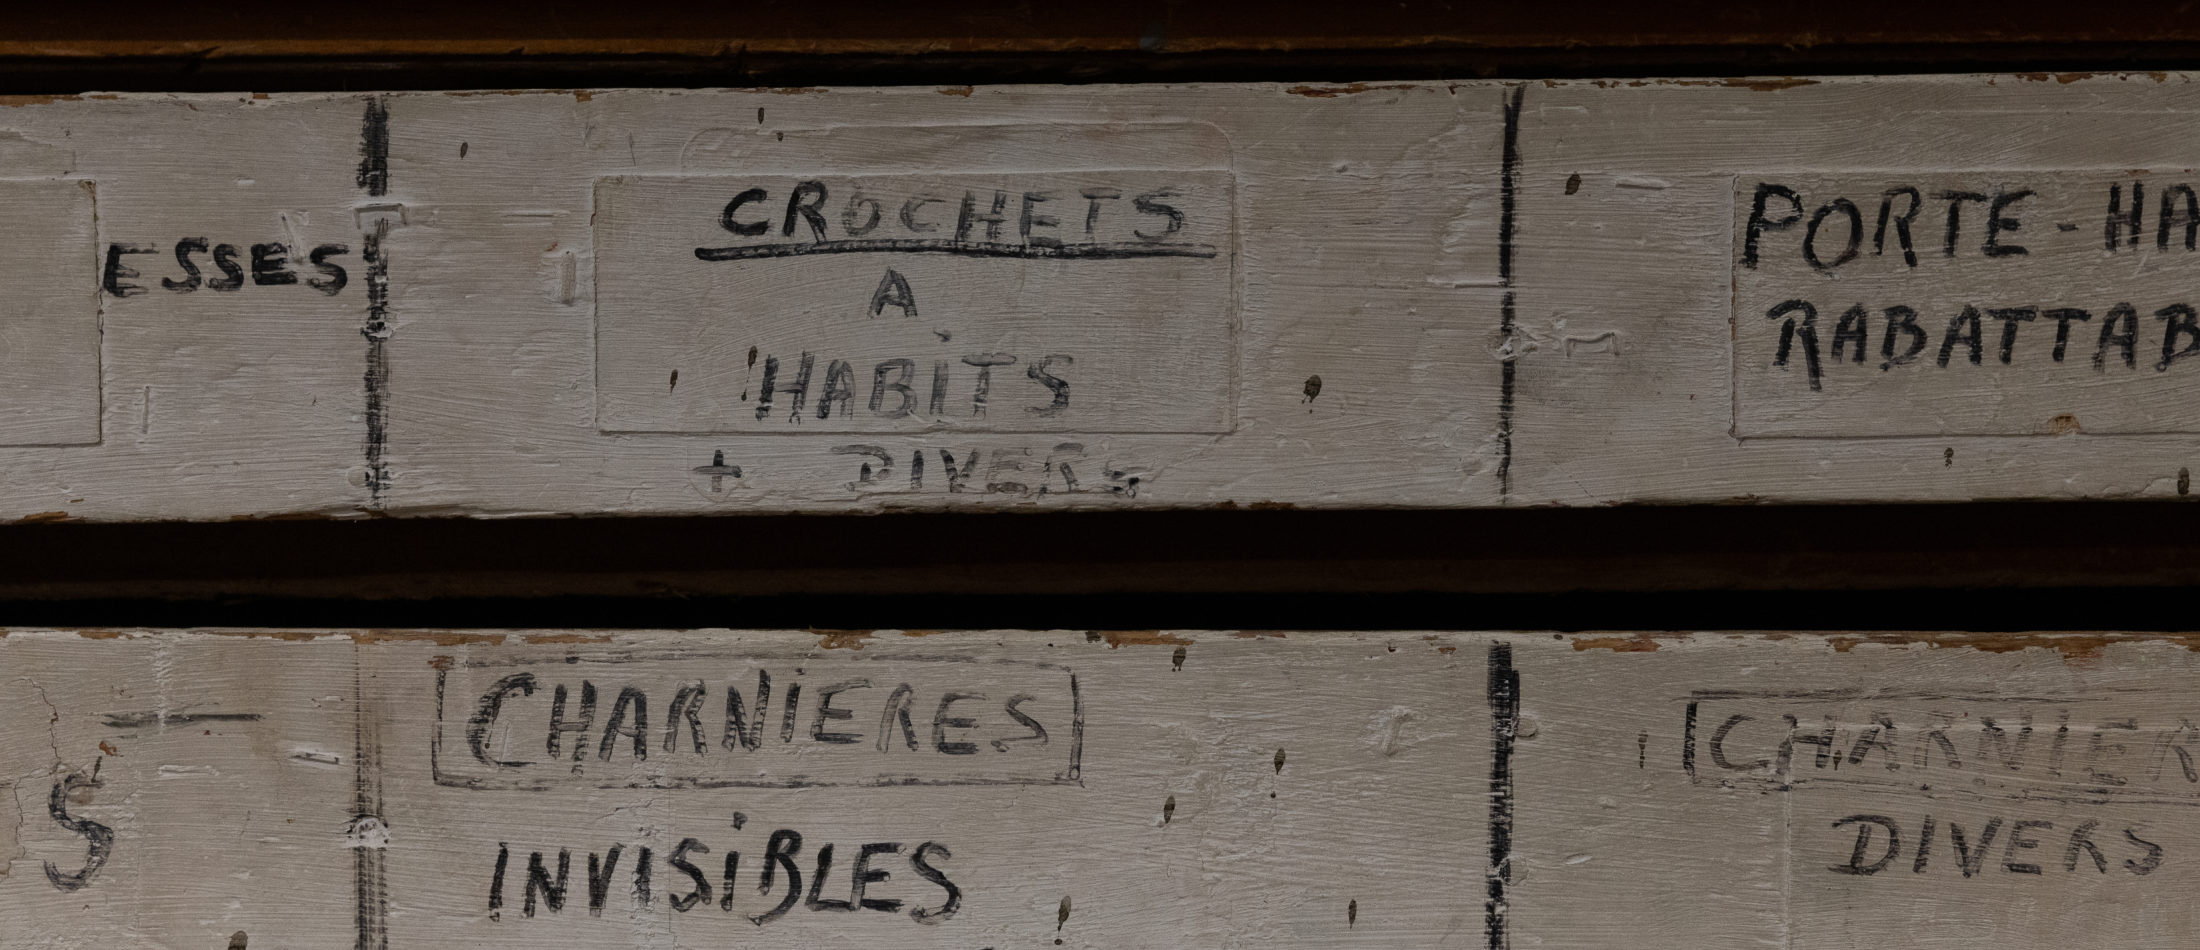 ESSES
CROCHETS
A
HABiTS
+ DIVERS
PORTE-HA
RABATTAB
S
CHARNiERES
INVISiBLES
CHARNIER
DIVERS